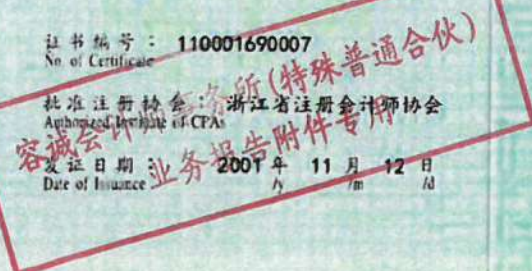 证书编号： 110001690007
No. of Certificate
批准注册协会： 浙江省注册会计师协会
Authorized Institute of CPAs
发证日期： 2001 年 11 月 12 日
Date of Issuance /y /m /d
容诚会计 事务所(特殊普通合伙)
业务报告附件专用